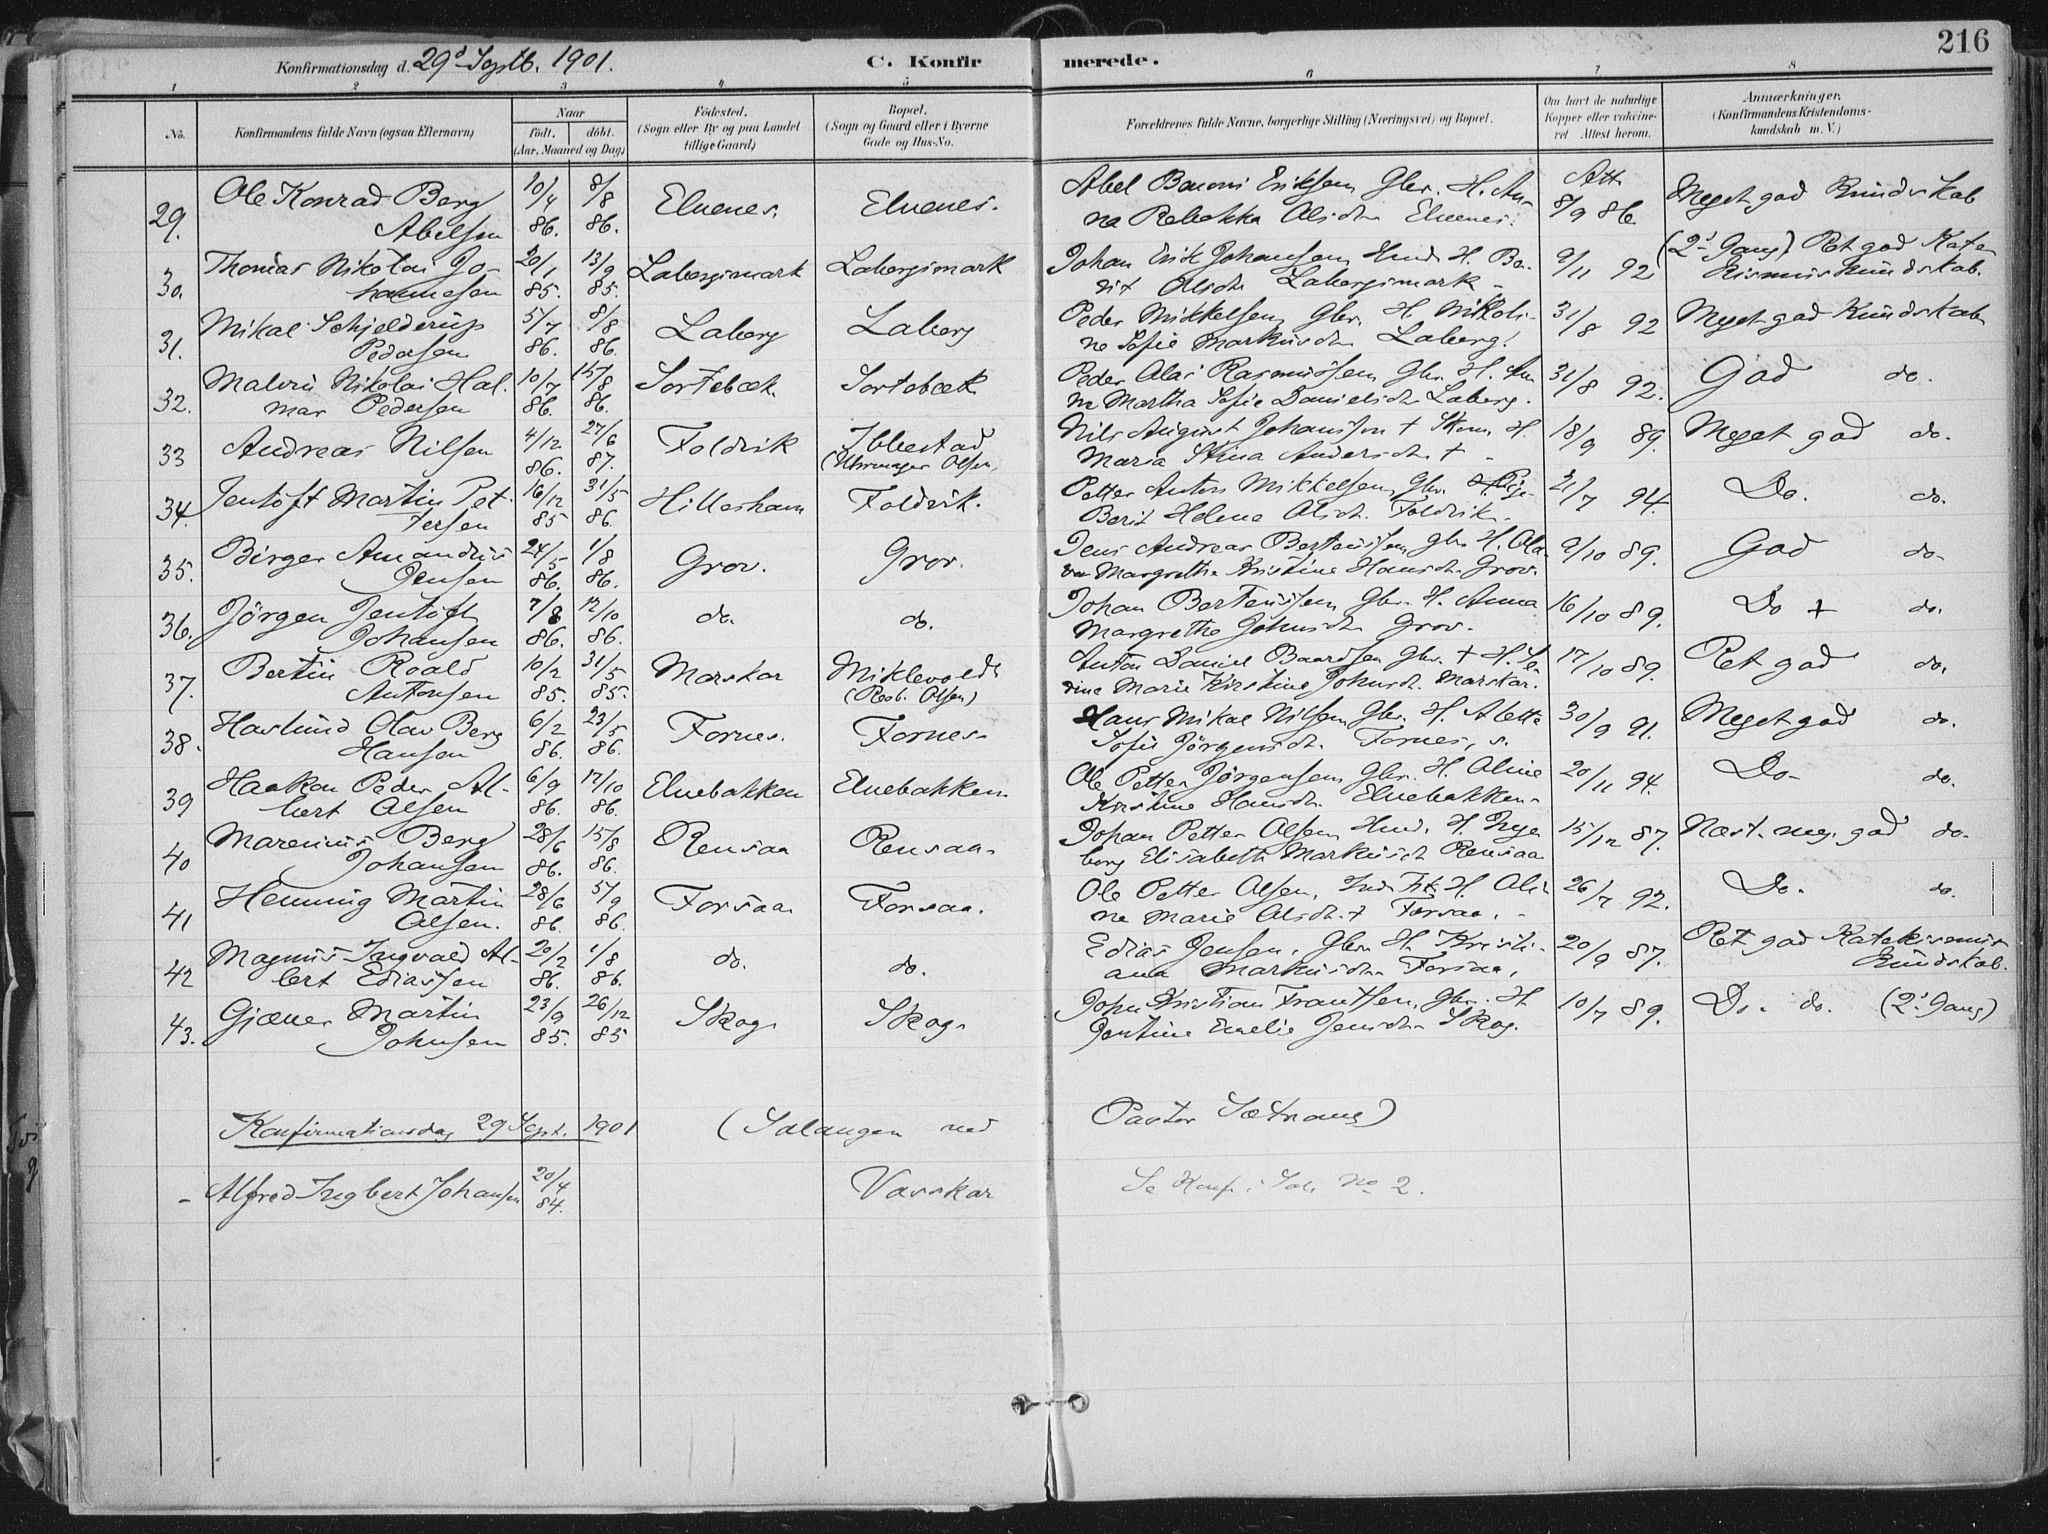 216
Konfirmationsdag d. 29d Septb. 1901. C. Konfirmerede.
1 2 3 4 5 6 7 8
No. Konfirmandens fulde Navn (ogsaa Efternavn) Naar födt. döbt. (Aar, Maaned og Dag) Födested. (Sogn eller By og paa Landet tillige Gaard) Bopæl. (Sogn og Gaard eller i Byerne Gade og Hus-No. Forældrenes fulde Navne, borgerlige Stilling (Næringsvei) og Bopæl. Om havt de naturlige Kopper eller vakcineret Attest herom. Anmærkninger. (Konfirmandens Kristendomskundskab m. V.)
29. Ole Konrad Berg 10/4 8/8 Elvenes. Elvenes. Abel Baroni Eriksen Gbr. H. An- Att. Meget god Kundskab
Abelsen 86. 86. na Rebekka Olsdtr Elvenes. 8/9 86.
30. Thomas Nikolai Jo- 20/1 13/9 Labergsmark Labergsmark Johan Erik Johansen Hmd. H. Be- 9/11 92 (2d Gang) Ret god Kate-
hannesen 85. 85. rit Olsdtr Labergsmark - kismuskundskab.
31. Mikal Schjelderup 5/7 8/8 Laberg Laberg Peder Mikkelsen Gbr. H. Nikoli- 31/8 92 Meget god Kundskab
Pedersen 86. 86. ne Sofie Markusdtr Laberg.
32. Malvin Nikolai Hal- 10/7 15/8 Sortebæk. Sortebæk Peder Olai Rasmussen Gbr. H. An- 31/8 92. God do.
mar Pedersen 86. 86. ne Martha Sofie Danielsdtr Laberg.
33 Andreas Nilsen 4/12 27/6 Foldvik Ibbestad Nils August Johansson + Skom. H. 18/9 89. Meget god do.
86. 87. (Uhrmager Olsen) Maria Stina Andersdtr +
34. Jentoft Martin Pet- 16/12 31/5 Hilleshamn Foldvik. Petter Anton Mikkelsen Gbr. H. 21/7 94. Do. do.
tersen 85 86. Berit Helene Olsdtr. Foldvik.
35. Birger Amandus 24/5 1/8 Grov. Grov. Jens Andreas Berteussen Gbr H. Ola- 9/10 89. God do-
Jensen 86. 86. va Margrethe Kristine Hansdtr. Grov.
36. Jörgen Jentoft 7/8 12/10 do. do. Johan Berteussen Gbr. H. Anna 16/10 89. Do + do.
Johansen 86. 86. Margrethe Johnsdtr Grov.
37. Bertin Roald 10/2 31/5 Marskar Miklevold Anton Daniel Baardsen Gbr. + H. Se- 17/10 89. Ret god do.
Antonsen 85. 85. (Reob. Olsen) rine Marie Kirstine Johnsdt. Marskar.
38. Haslund Olav Berg 6/2 23/5 Fornes. Fornes. Hans Mikal Nilsen Gbr. H. Alette 30/9 91. Meget god do.
Hansen 86. 86. Sofie Jörgensdtr. Fornes, s.
39 Haakon Peder Al- 6/9 17/10 Elvebakken Elvebakken. Ole Petter Jörgensen Gbr. H. Oline 20/11 94. Do- do.
bert Olsen 86. 86. Kristine Hansdtr. Elvebakken.
40 Marenius Berg 28/6 15/8 Rensaa Rensaa. Johan Petter Olsen Hmd. H. Inge- 15/12 87. Næst. meg. god do.
Johansen 86. 86. borg Elisabeth Markusdt Rensaa
41 Henning Martin 28/6 5/9 Forsaa. Forsaa. Ole Petter Olsen, Ind. Fsk. H. Oli- 26/7 92. Do. do.
Olsen. 86. 86. ne Marie Olsdtr. + Forsaa.
42 Magnus Ingvald Al- 20/2 1/8 do. do. Edias Jensen. Gbr. H. Kristi- 20/9 87. Ret god Katekismus
bert Ediassen 86. 86. ana Markusdtr Forsaa. kundskab.
43. Gjæver Martin 23/9 26/12 Skog. Skog. John Kristian Frantsen. Gbr. H. 10/7 89. Do. do. (2d Gang)
Johnsen 85. 85 Jentine Emelie Jensdtr. Skog.
Konfirmationsdag 29 Sept. 1901 (Salangen ved Pastor Sætrang)
- Alfred Ingbert Johansen 20/4 Vasskar Se Konf. i Sal. No 2.
84.